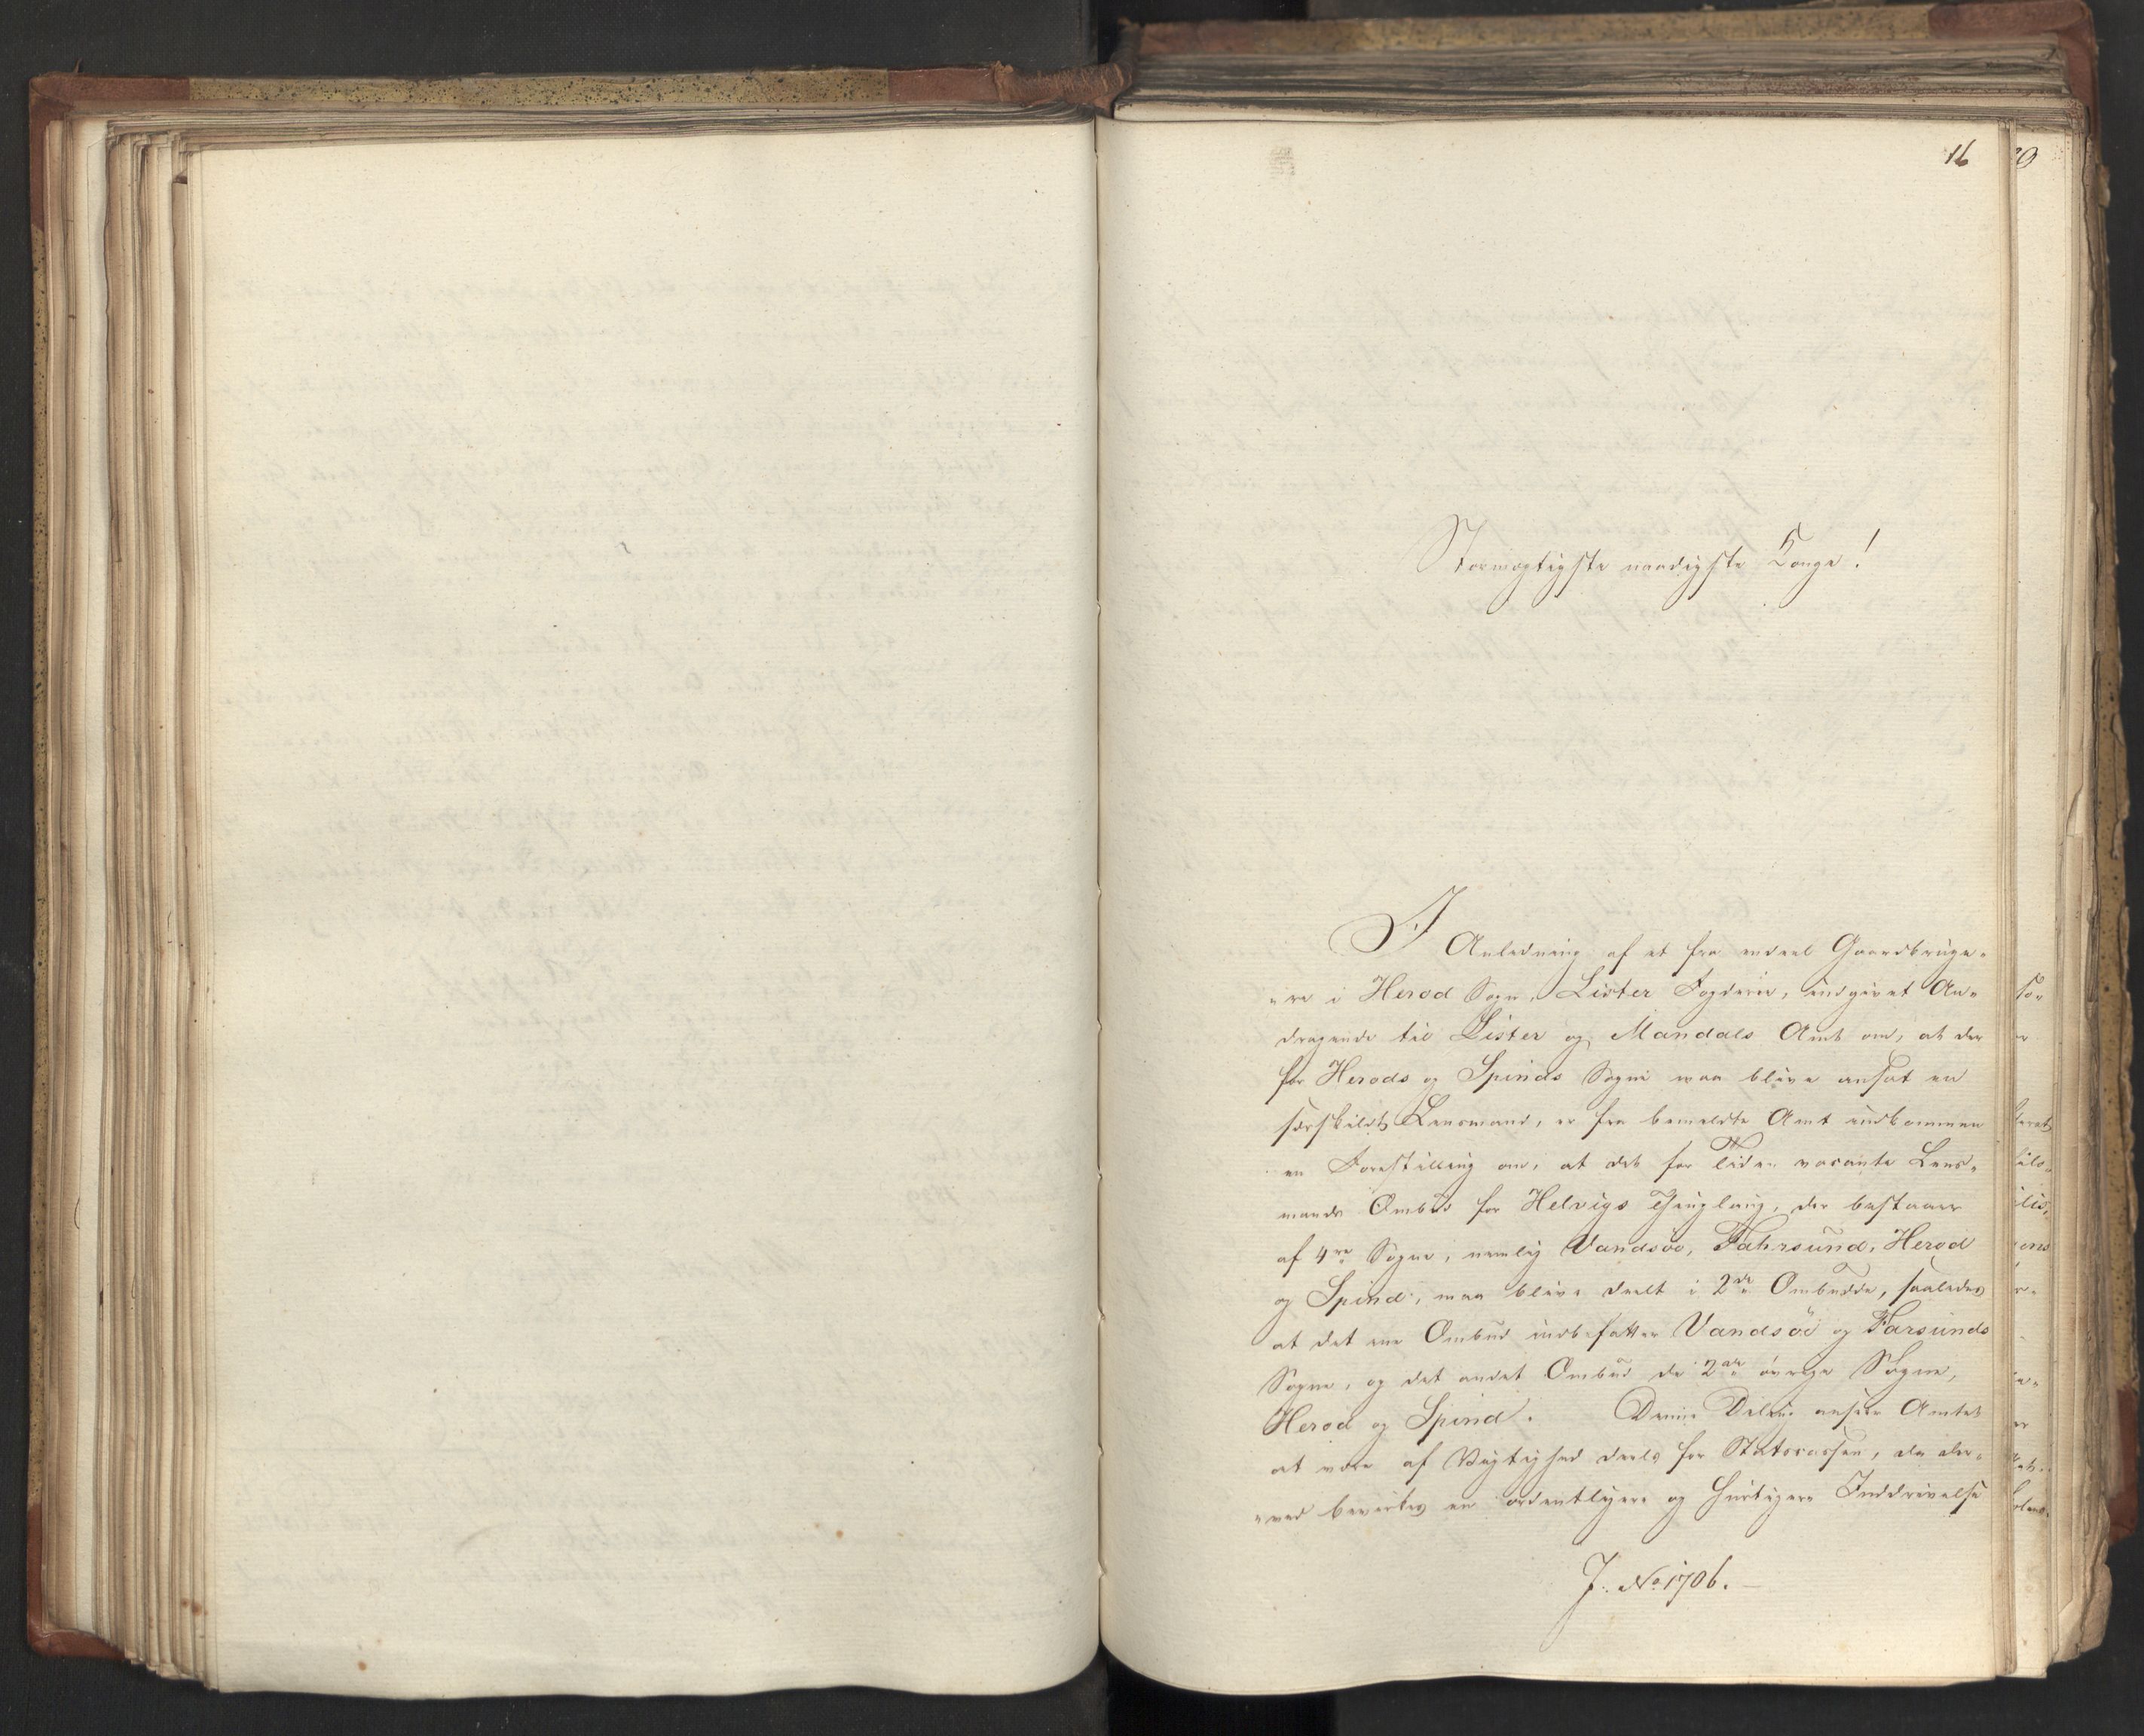 16
Stormægtigste naadigste Konge!
I Anledning af at fra endeel Gaardbruge-
-re i Herod Sogn, Lister Fogderie, indgivet An-
dragende til Lister og Mandals Amt om, at der
for Herods og Spinds Sogne maa blive ansat en
særskildt Lensmand, er fra bemeldte Amt indkommen
en Forestilling om, at det for Tiden vacante Lens-
mands Ombud for Helvigs Thinglaug, der bestaaer
af 4re Sogne, nemlig Vandsöe, Fahrsund, Herod
og Spind, maa blive deelt i 2de Ombudde, saaledes
at det ene Ombud indbefatter Vandsöe og Farsunds
Sogne, og det andet Ombud de 2de övrige Sogne,
Herod og Spind. Denne Deling anseer Amtet
at være af Vigtighed deels for Statscassen, da der-
-ved bevirkes en ordentligere og hurtigere Inddrivelse
J. No 1706.